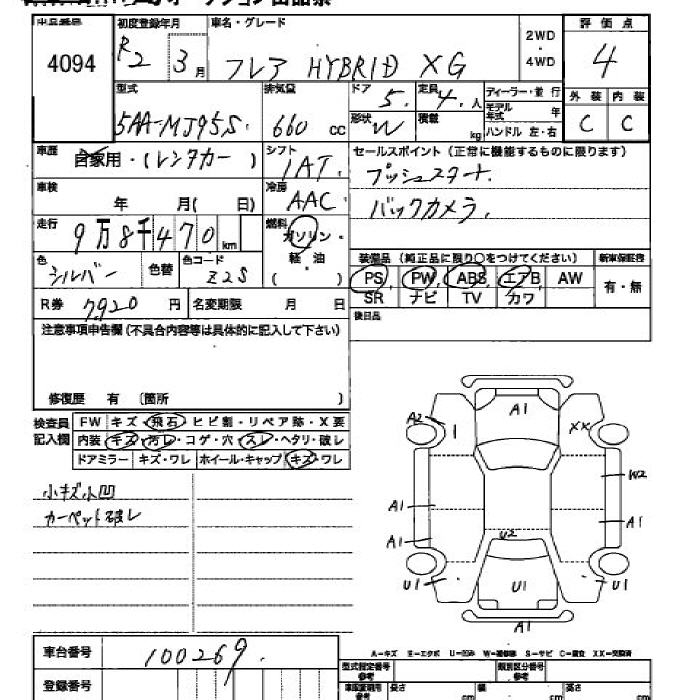 オークション出品票
出品番号 初度登録年月 車名・グレード 2WD・4WD 評価点
4094 R2 3月 フレア HYBRID XG 4
型式 排気量 ドア 5. 定員 4.人 ディーラー・並行 外装 内装
5AA-MJ95S. 660cc 形状 W 積載 kg モデル年式 年 ハンドル 左・右 C C
車歴 自家用・(レンタカー) シフト 1AT. セールスポイント(正常に機能するものに限ります)
プッシュスタート.
車検 年 月( 日) 冷房 AAC バックカメラ.
走行 9万8千470km 燃料 ガソリン・軽・油 ( )
色 シルバー 色替 色コード Z2S 装備品(純正品に限り○をつけてください) 新車保証書
PS. PW. ABS. エアB. AW 有・無
SR ナビ TV カワ
R券 7,920円 名変期限 月 日 後日品
注意事項申告欄(不具合内容等は具体的に記入して下さい)
修復歴 有 〔箇所 〕
検査員記入欄 FW キズ・飛石・ヒビ割・リペア跡・X要
内装 キズ・汚レ・コゲ・穴・スレ・ヘタリ・破レ
ドアミラー キズ・ワレ ホイール・キャップ キズ・ワレ
小キズ小凹
カーペット破レ
A1
A2 1 XX
W2
A1 A1
A1
U2
U1 U1 U1
A1
A=キズ E=エクボ U=凹み W=補修跡 S=サビ C=腐食 XX=交換済
車台番号 100269.
型式指定番号 参考 類別区分番号 参考
登録番号 長さ cm 幅 cm 高さ cm